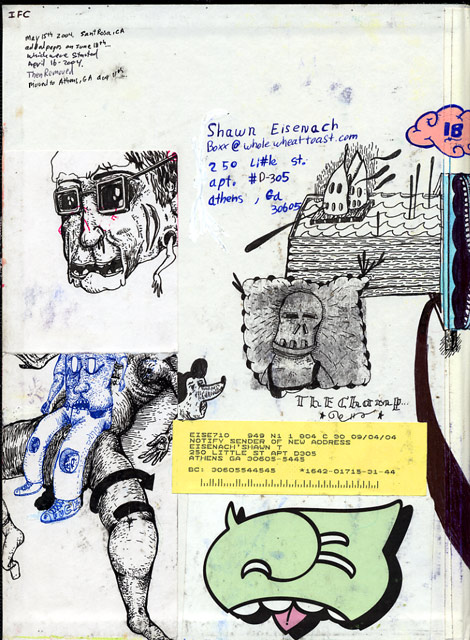 IFC
May 15th 2004. Santa Rosa, CA
added pages on June 18th
which were started
April 16-2004.
Then Removed
Moved to Athens, GA
Shawn Eisenach
Boxx@wholewheattoast.com
250 Little st.
apt. #D-305
Athens, Ga
30605
18
The Champ...
EISE710 949 N1 1 804 C 30 09/04/04
NOTIFY SENDER OF NEW ADDRESS
EISENACH'SHAWN T
250 LITTLE ST APT D305
ATHENS GA 30605-5445
BC: 30605544545 *1642-01715-31-44